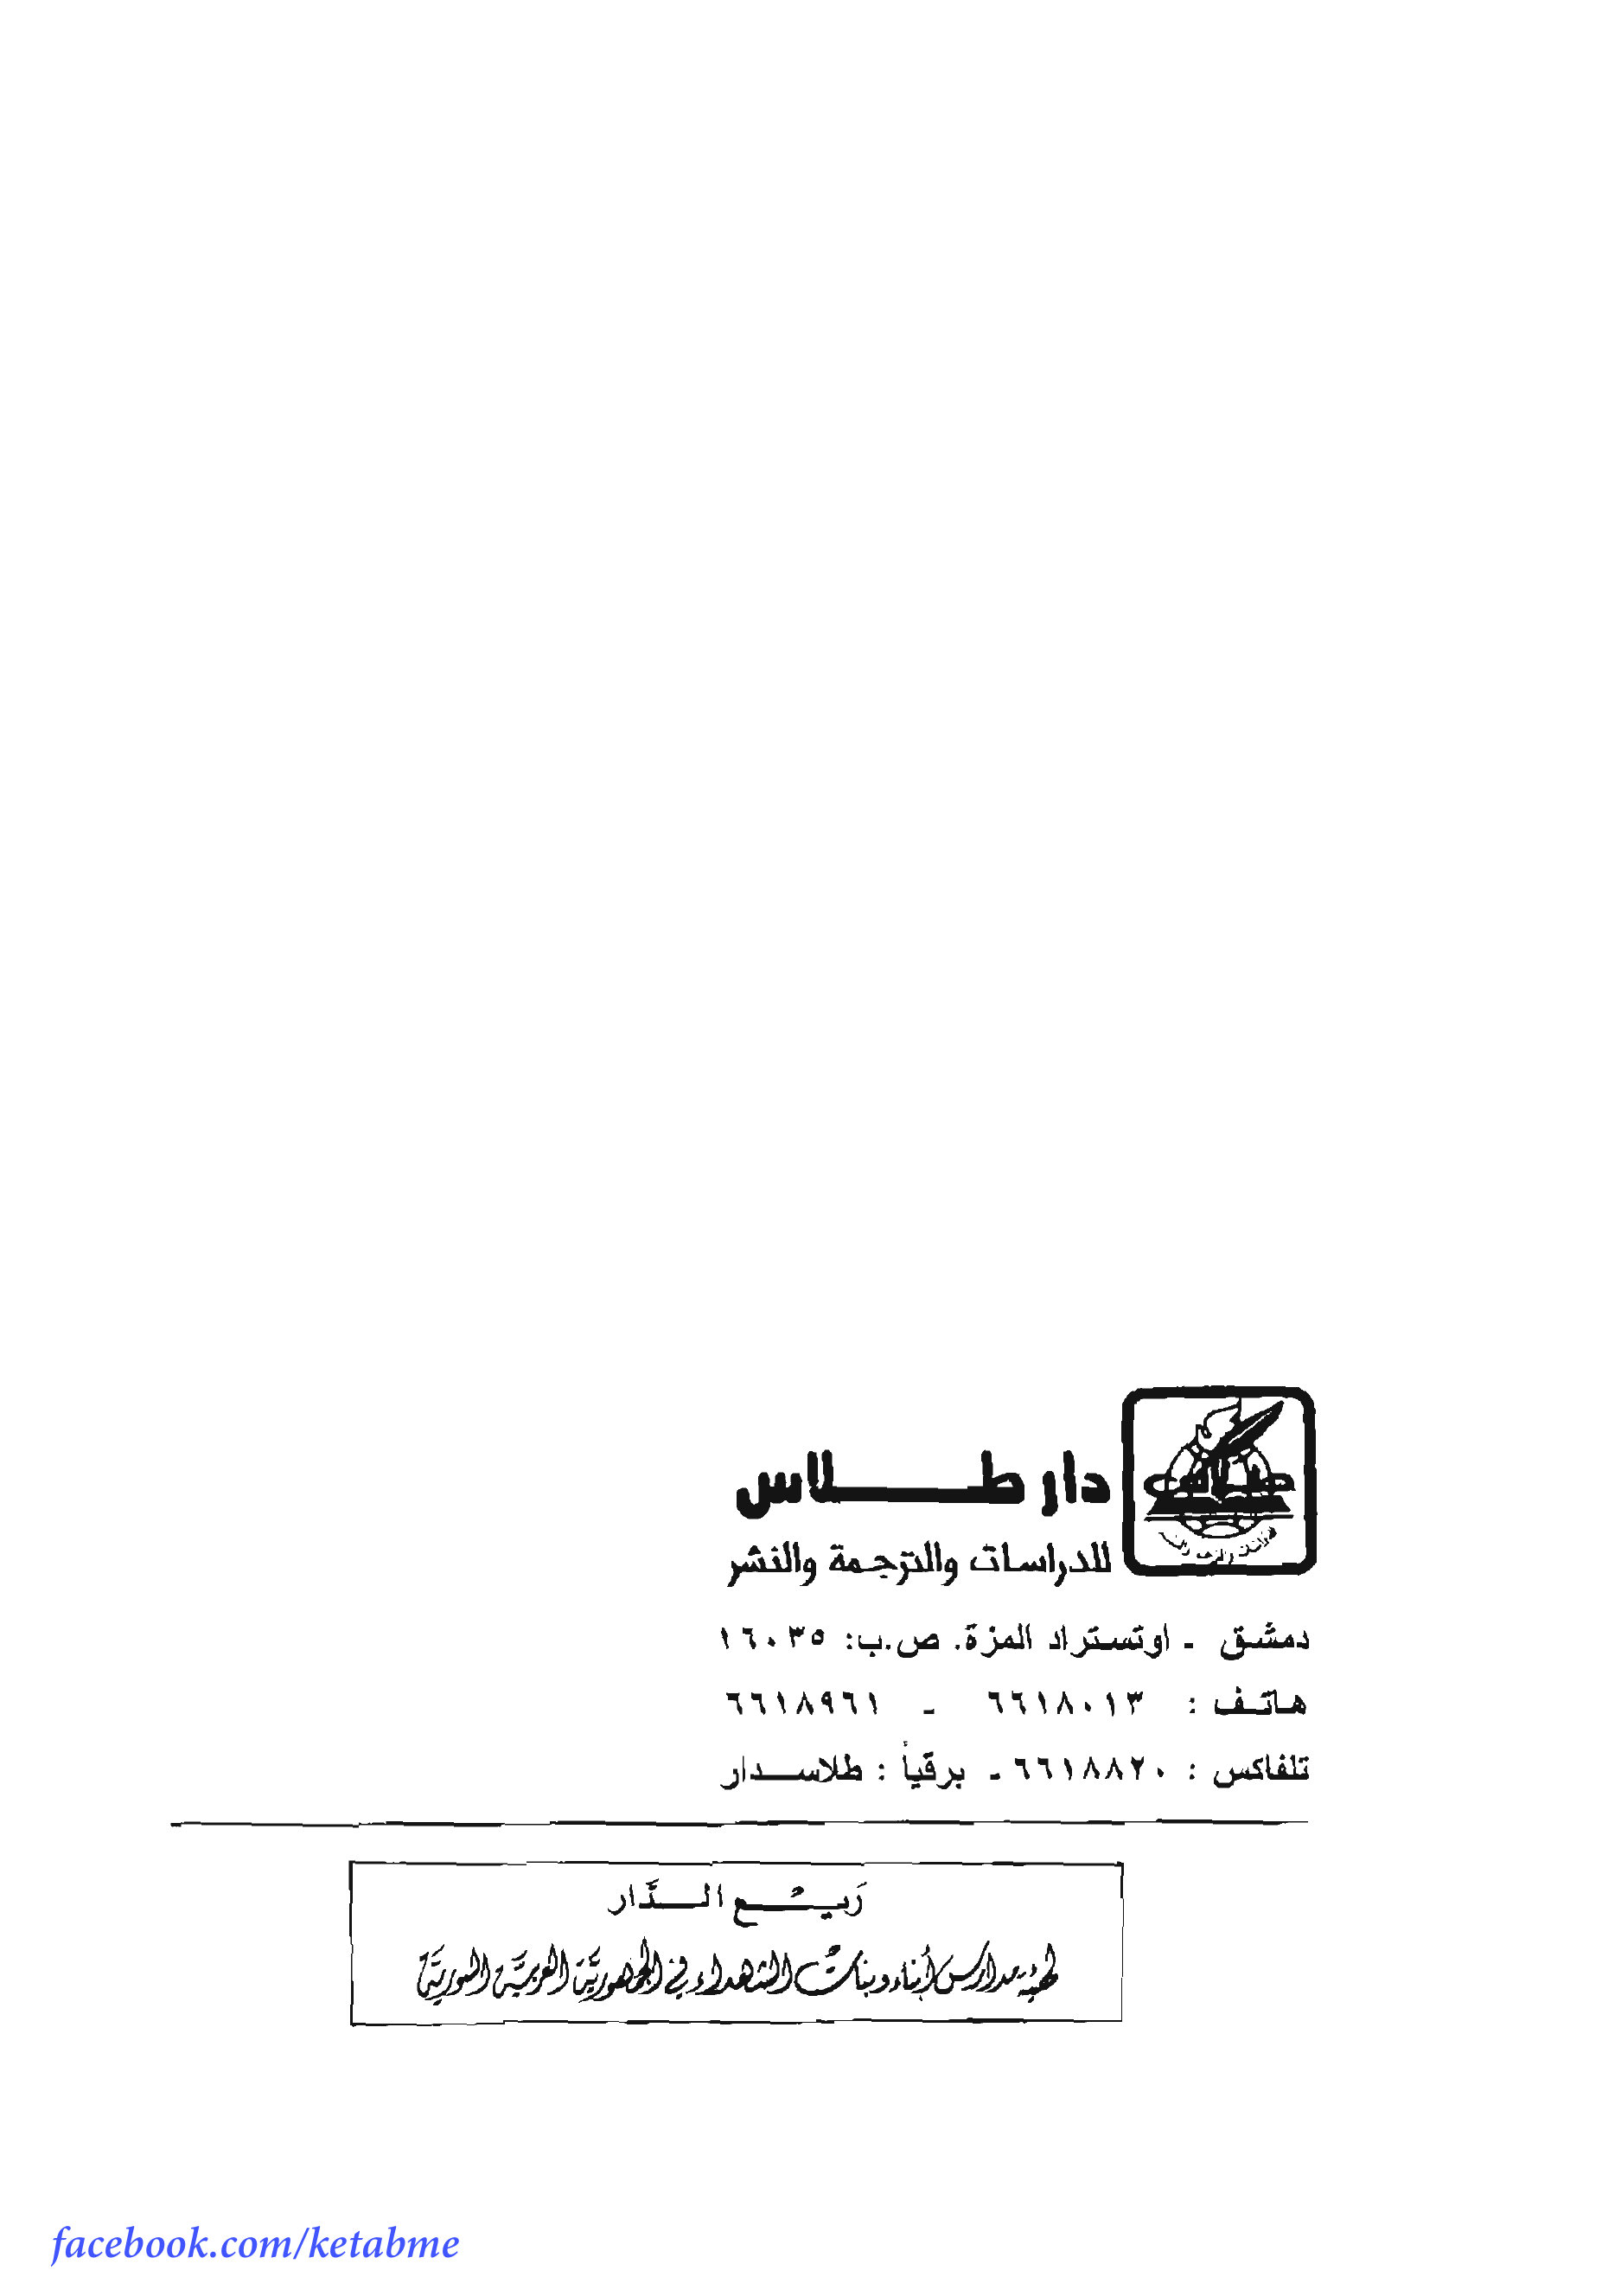 طلاس
دار طـــــــلاس
للدراسات والترجمة والنشر
دمشق - اوتستراد المزة. ص.ب: ١٦٠٣٥
هاتف : ٦٦١٨٠١٣ - ٦٦١٨٩٦١
تلفاكس : ٦٦١٨٨٢٠ - برقياً : طلاســـدار
رَيـــع الـــدَّار
لهيئة مدارس أبناء وبنات الشهداء في الجمهوريَّة العربيَّة السوريَّة
facebook.com/ketabme